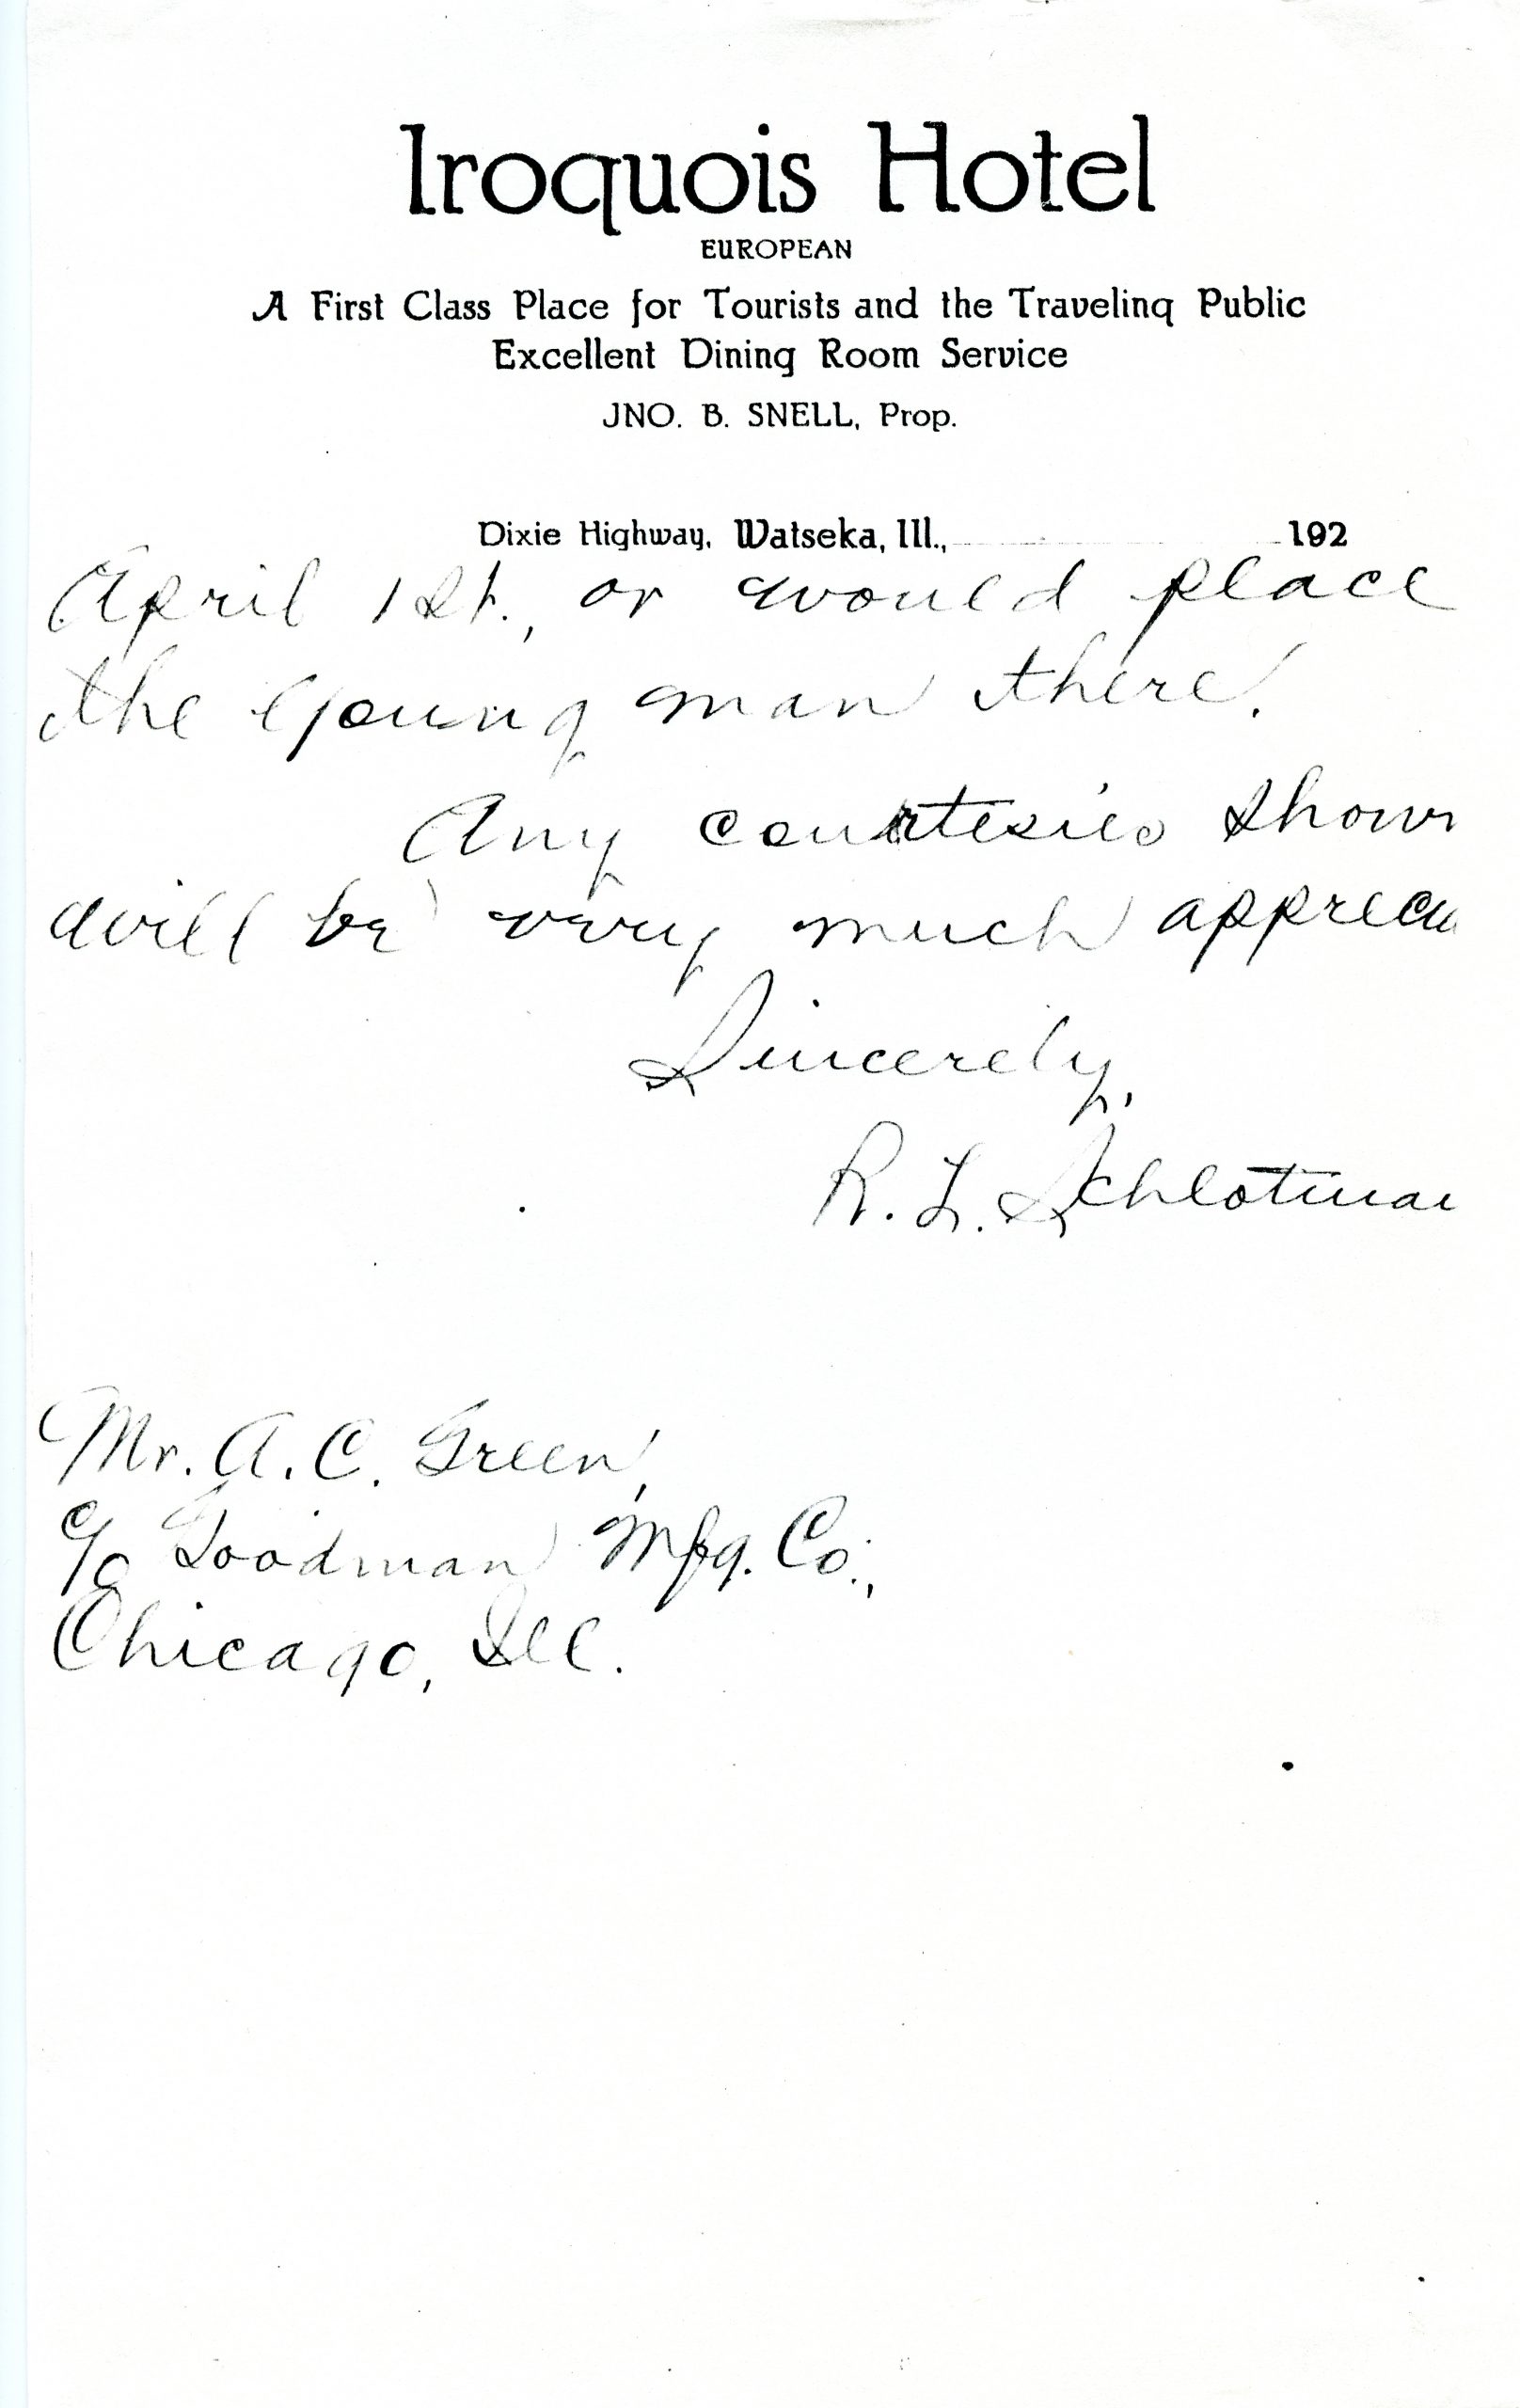 Iroquois Hotel
EUROPEAN
A First Class Place for Tourists and the Traveling Public
Excellent Dining Room Service
JNO. B. SNELL, Prop.
Dixie Highway, Watseka, Ill., 192
April 1st., or would place
the young man there.
Any courtesies shown
will be very much apprecia
Sincerely,
R. L. Schlotman
Mr. A. C. Green,
c/o Goodman Mfg. Co.,
Chicago, Ill.